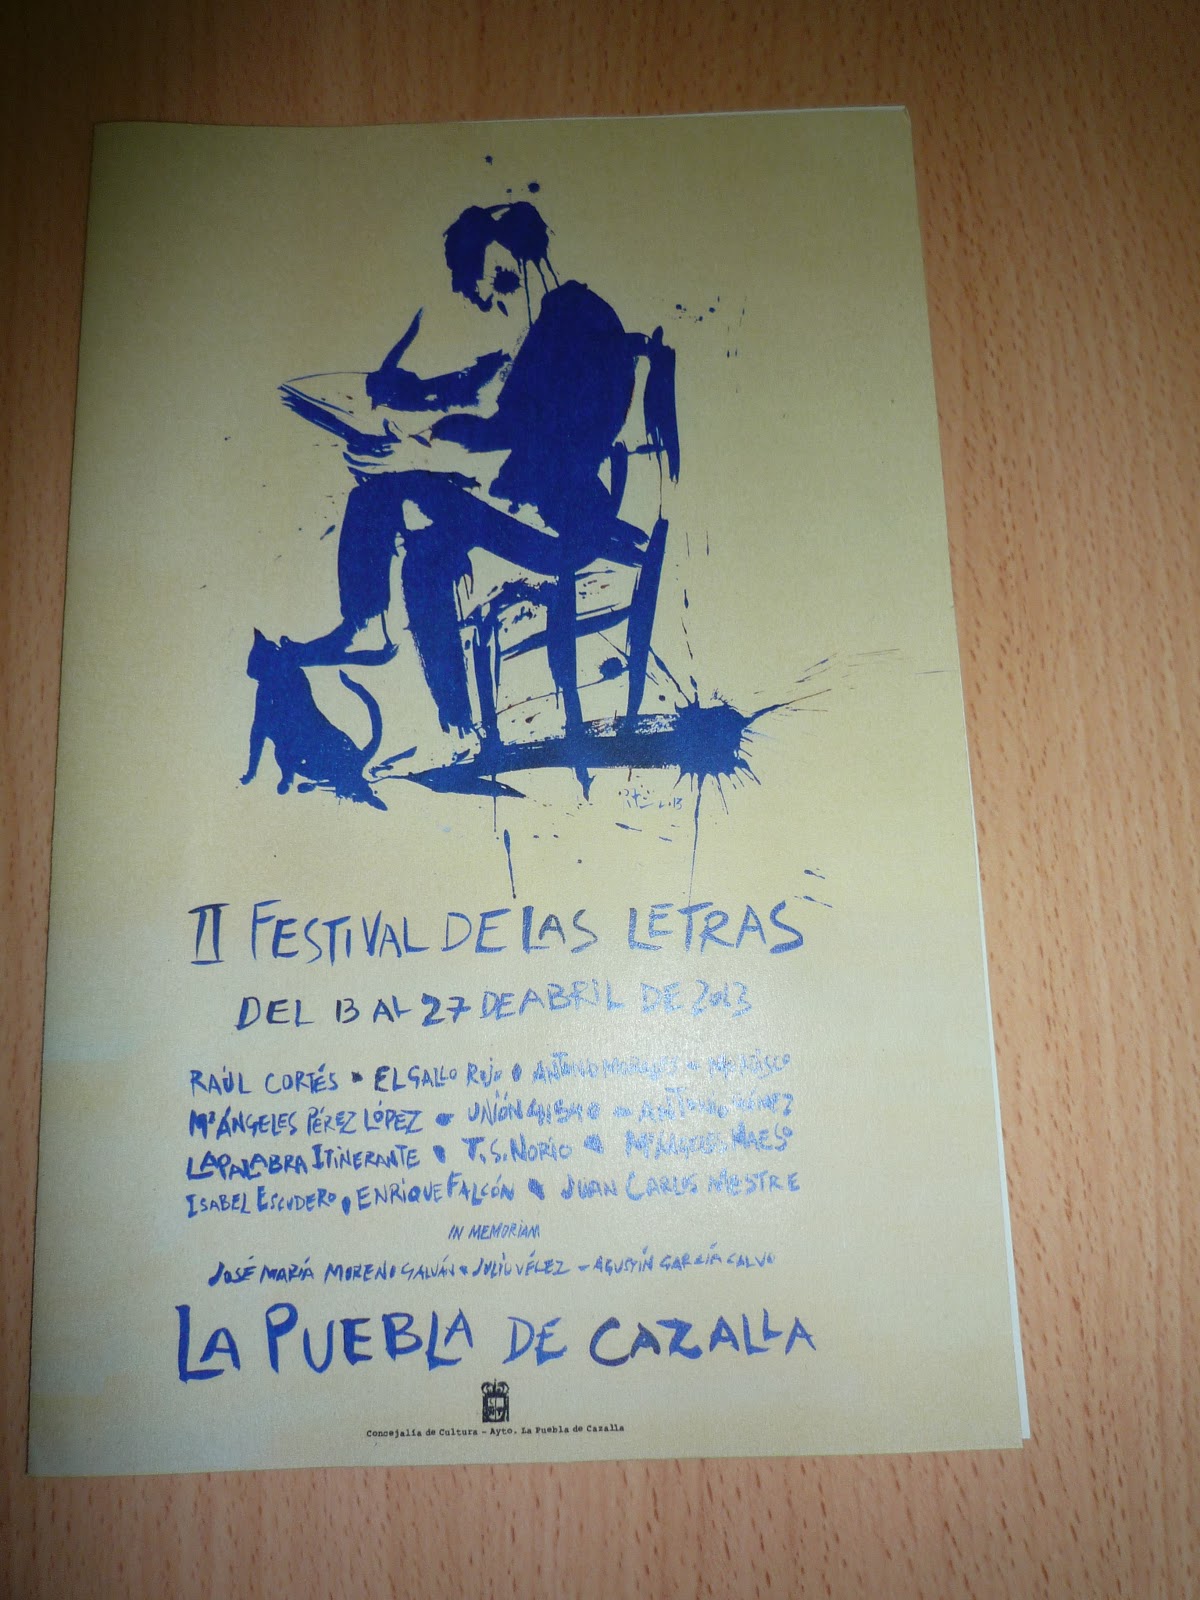 II FESTIVAL DE LAS LETRAS
DEL 13 AL 27 DE ABRIL DE 2013
RAÚL CORTÉS • EL GALLO ROJO • ANTONIO
Mª ÁNGELES PÉREZ LÓPEZ • UNIÓN • ANTONIO
LA PALABRA ITINERANTE • T.S. NORIO • Mª ÁNGELES MAESO
ISABEL ESCUDERO • ENRIQUE FALCÓN • JUAN CARLOS MESTRE
IN MEMORIAM
JOSÉ MARÍA MORENO GALVÁN • JULIO VÉLEZ - AGUSTÍN GARCÍA CALVO
LA PUEBLA DE CAZALLA
Concejalía de Cultura - Ayto. La Puebla de Cazalla